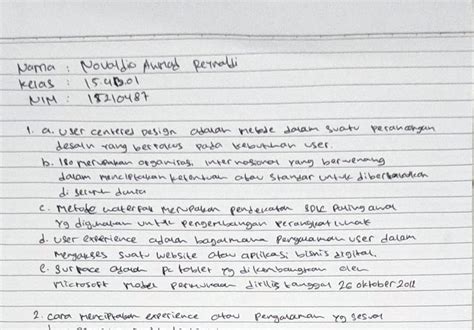 Nama : Novaldio Ahmad Reynaldi
Kelas : 15.4B.01
NIM : 15210487
1. a. User centered Design adalah metode dalam suatu perancangan
desain yang berfokus pada kebutuhan user.
b. Iso merupakan organisasi internasional yang berwenang
dalam menciptakan ketentuan atau standar untuk diberlakukan
di seluruh dunia
c. Metode waterfall merupakan pendekatan SDLC paling awal
yg digunakan untuk pengembangan perangkat lunak
d. User experience adalah bagaimana pengalaman user dalam
mengakses suatu website atau aplikasi bisnis digital.
e. Surface adalah pc tablet yg dikembangkan oleh
Microsoft model permukaan dirilis tanggal 26 oktober 2011
2. cara menciptakan experience atau pengalaman yg sesuai